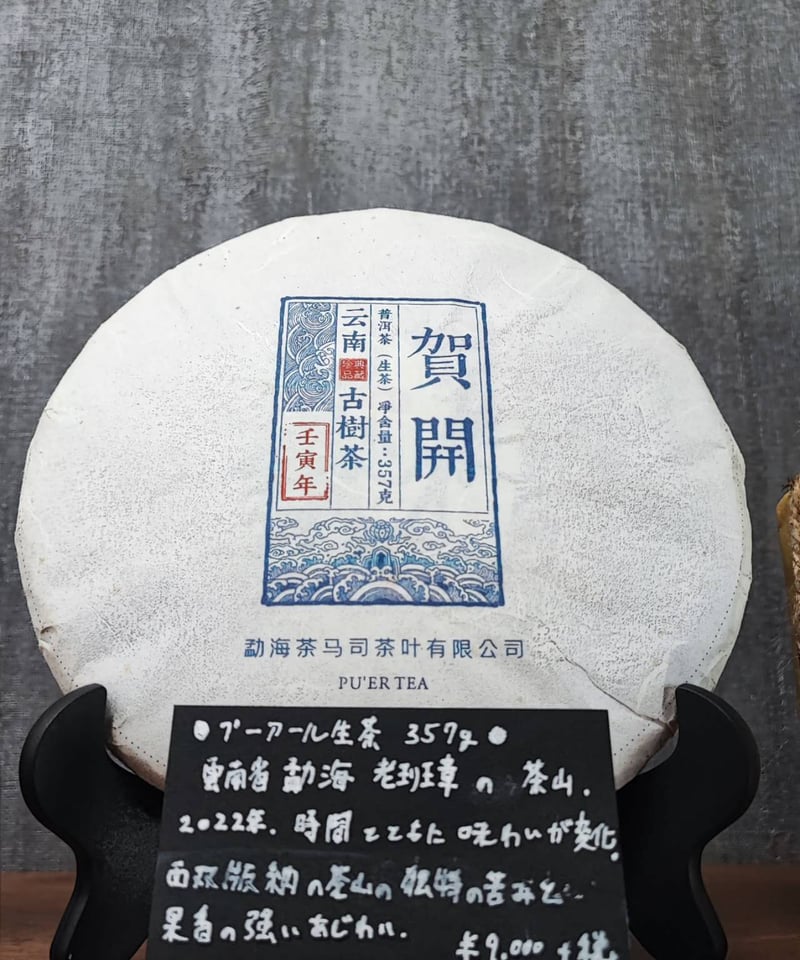 賀開
普洱茶（生茶）淨含量：357克
云南
典藏
珍品
古樹茶
壬寅年
勐海茶马司茶叶有限公司
PU'ER TEA
●プーアール生茶 357g●
雲南省 勐海 老班章の茶山.
2022年. 時間とともに味わいが変化.
西双版納の茶山の独特の苦みと
果香の強いあじわい.
¥9,000+税